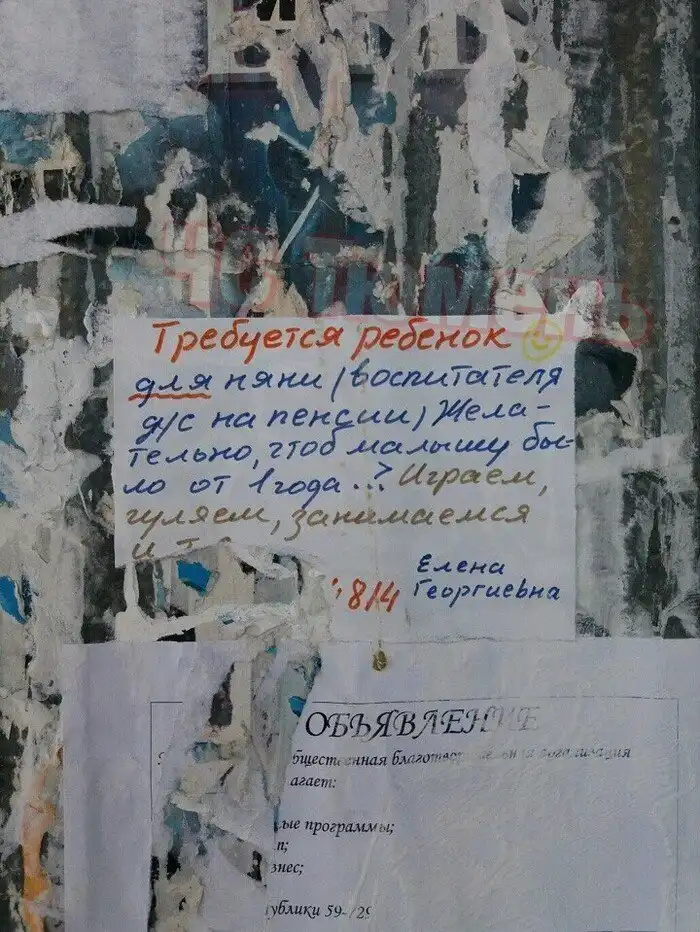 ЧС Тюмень
Требуется ребенок
для няни (воспитателя
д/с на пенсии) Жела-
тельно, чтоб малышу бы-
ло от 1 года...? Играем,
гуляем, занимаемся
и т
814
Елена
Георгиевна
ОБЪЯВЛЕНИЕ
бщественная благотворительная организация
агает:
ые программы;
п;
знес;
ублики 59-